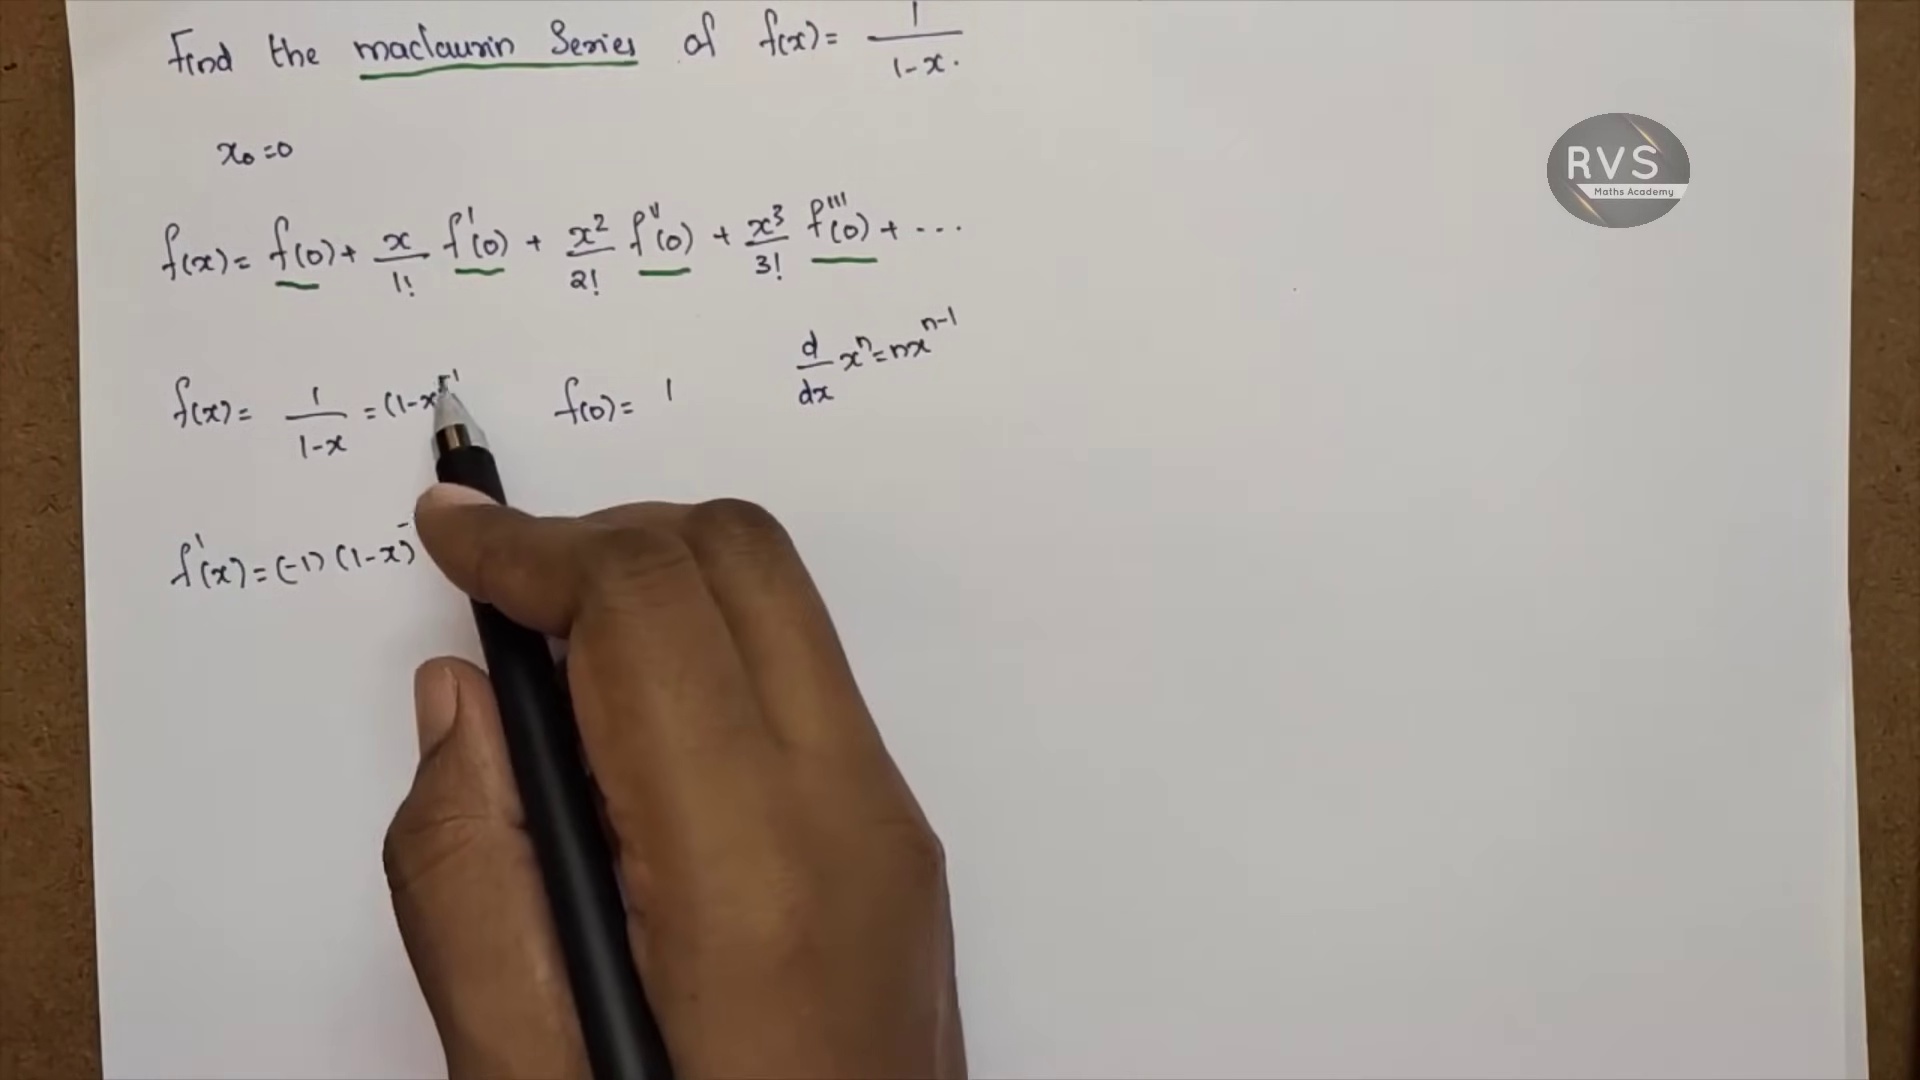 Find the maclaurin Series of f(x) = 1/(1-x).
RVS
Maths Academy
x₀=0
f(x) = f(0) + x/1! f'(0) + x²/2! f''(0) + x³/3! f'''(0) + ...
f(x) = 1/(1-x) = (1-x)⁻¹ f(0) = 1 d/dx xⁿ = nxⁿ⁻¹
f'(x) = (-1) (1-x)⁻